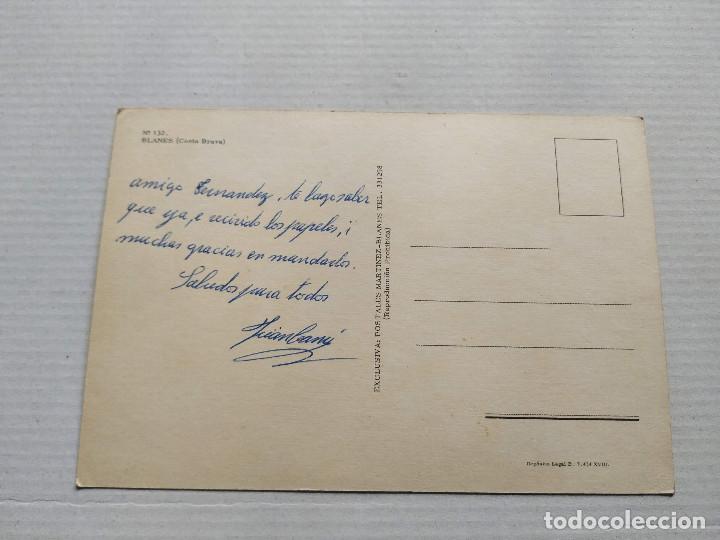 Nº 132.
BLANES (Costa Brava)
amigo Fernandez, te hago saber
que ya, e recivido los papeles, i
muchas gracias en mandarlos.
Saludos para todos
Juan
EXCLUSIVA: POSTALES MARTINEZ-BLANES TEL. 331298
(Reproducción Prohibida)
Depósito Legal B. 7.434 XVIII.
todocoleccion